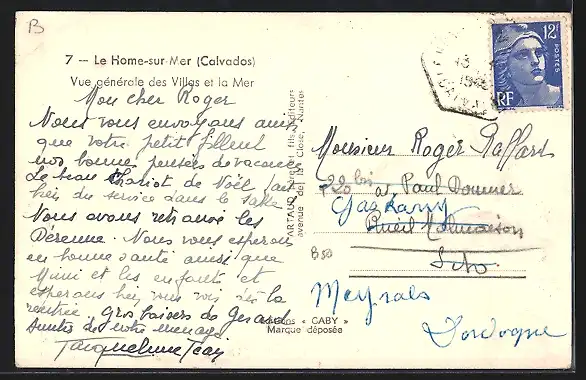 B
7 — Le Home-sur-Mer (Calvados)
Vue générale des Villas et la Mer
Mon cher Roger
Nous vous envoyons ainsi
que votre petit filleul
nos bonnes pensées de vacances
Le beau chariot de Noël fait
bien du service dans le sable
Nous avons retrouvé les
Derenne. Nous vous espérons
en bonne santé ainsi que
Mimi et les enfants et
espérons bien vous voir dès la
rentrée. Gros baisers de Gérard
de notre ménage
Jacqueline Jean
ARTAUD Père et fils, Éditeurs
avenue de la Close, Nantes
Éditions « GABY »
Marque déposée
B50
12F
POSTES
RF
CALVADOS
Monsieur Roger Paffard
20 bis av Paul Doumer
Rueil Malmaison
S et O
Meyrals
Dordogne